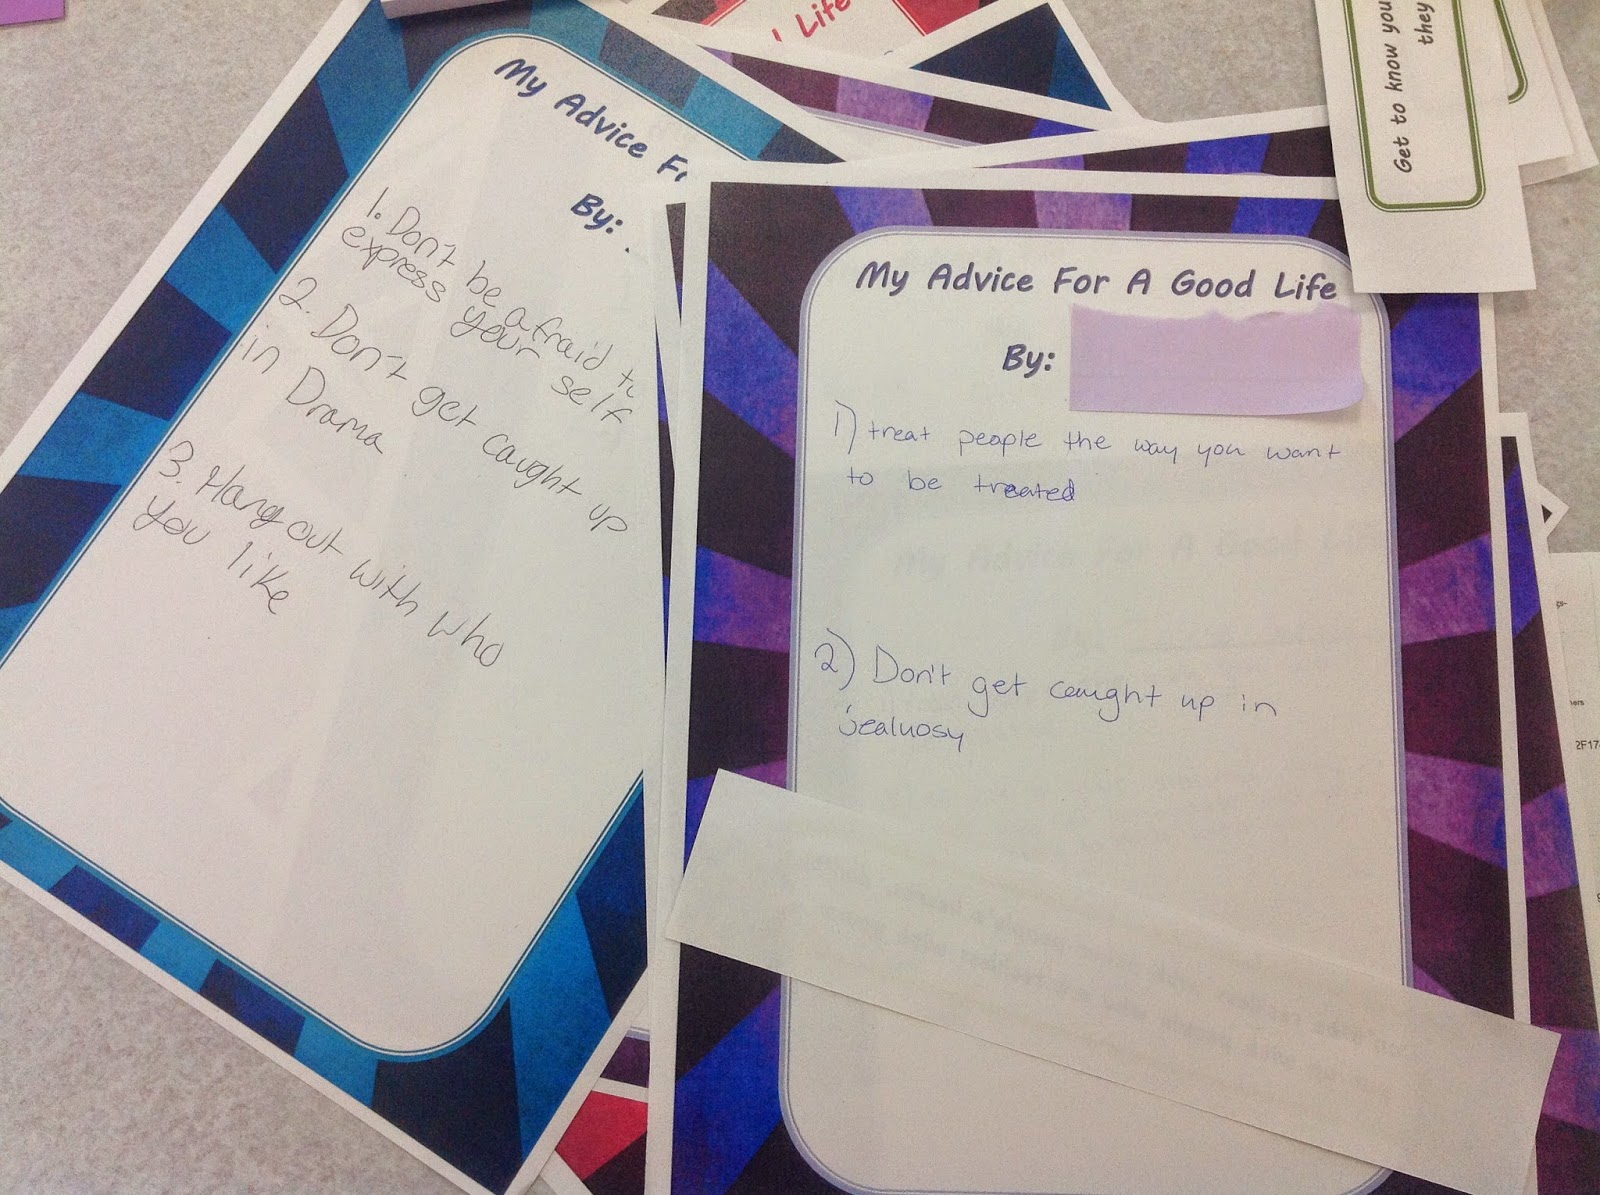 My Advice F
By:
1. Don't be afraid to
express your self
2. Don't get caught up
in Drama
3. Hang out with who
you like
My Advice For A Good Life
By:
1) treat people the way you want
to be treated
2) Don't get caught up in
jealuosy
Life
Get to know you
they
2F17